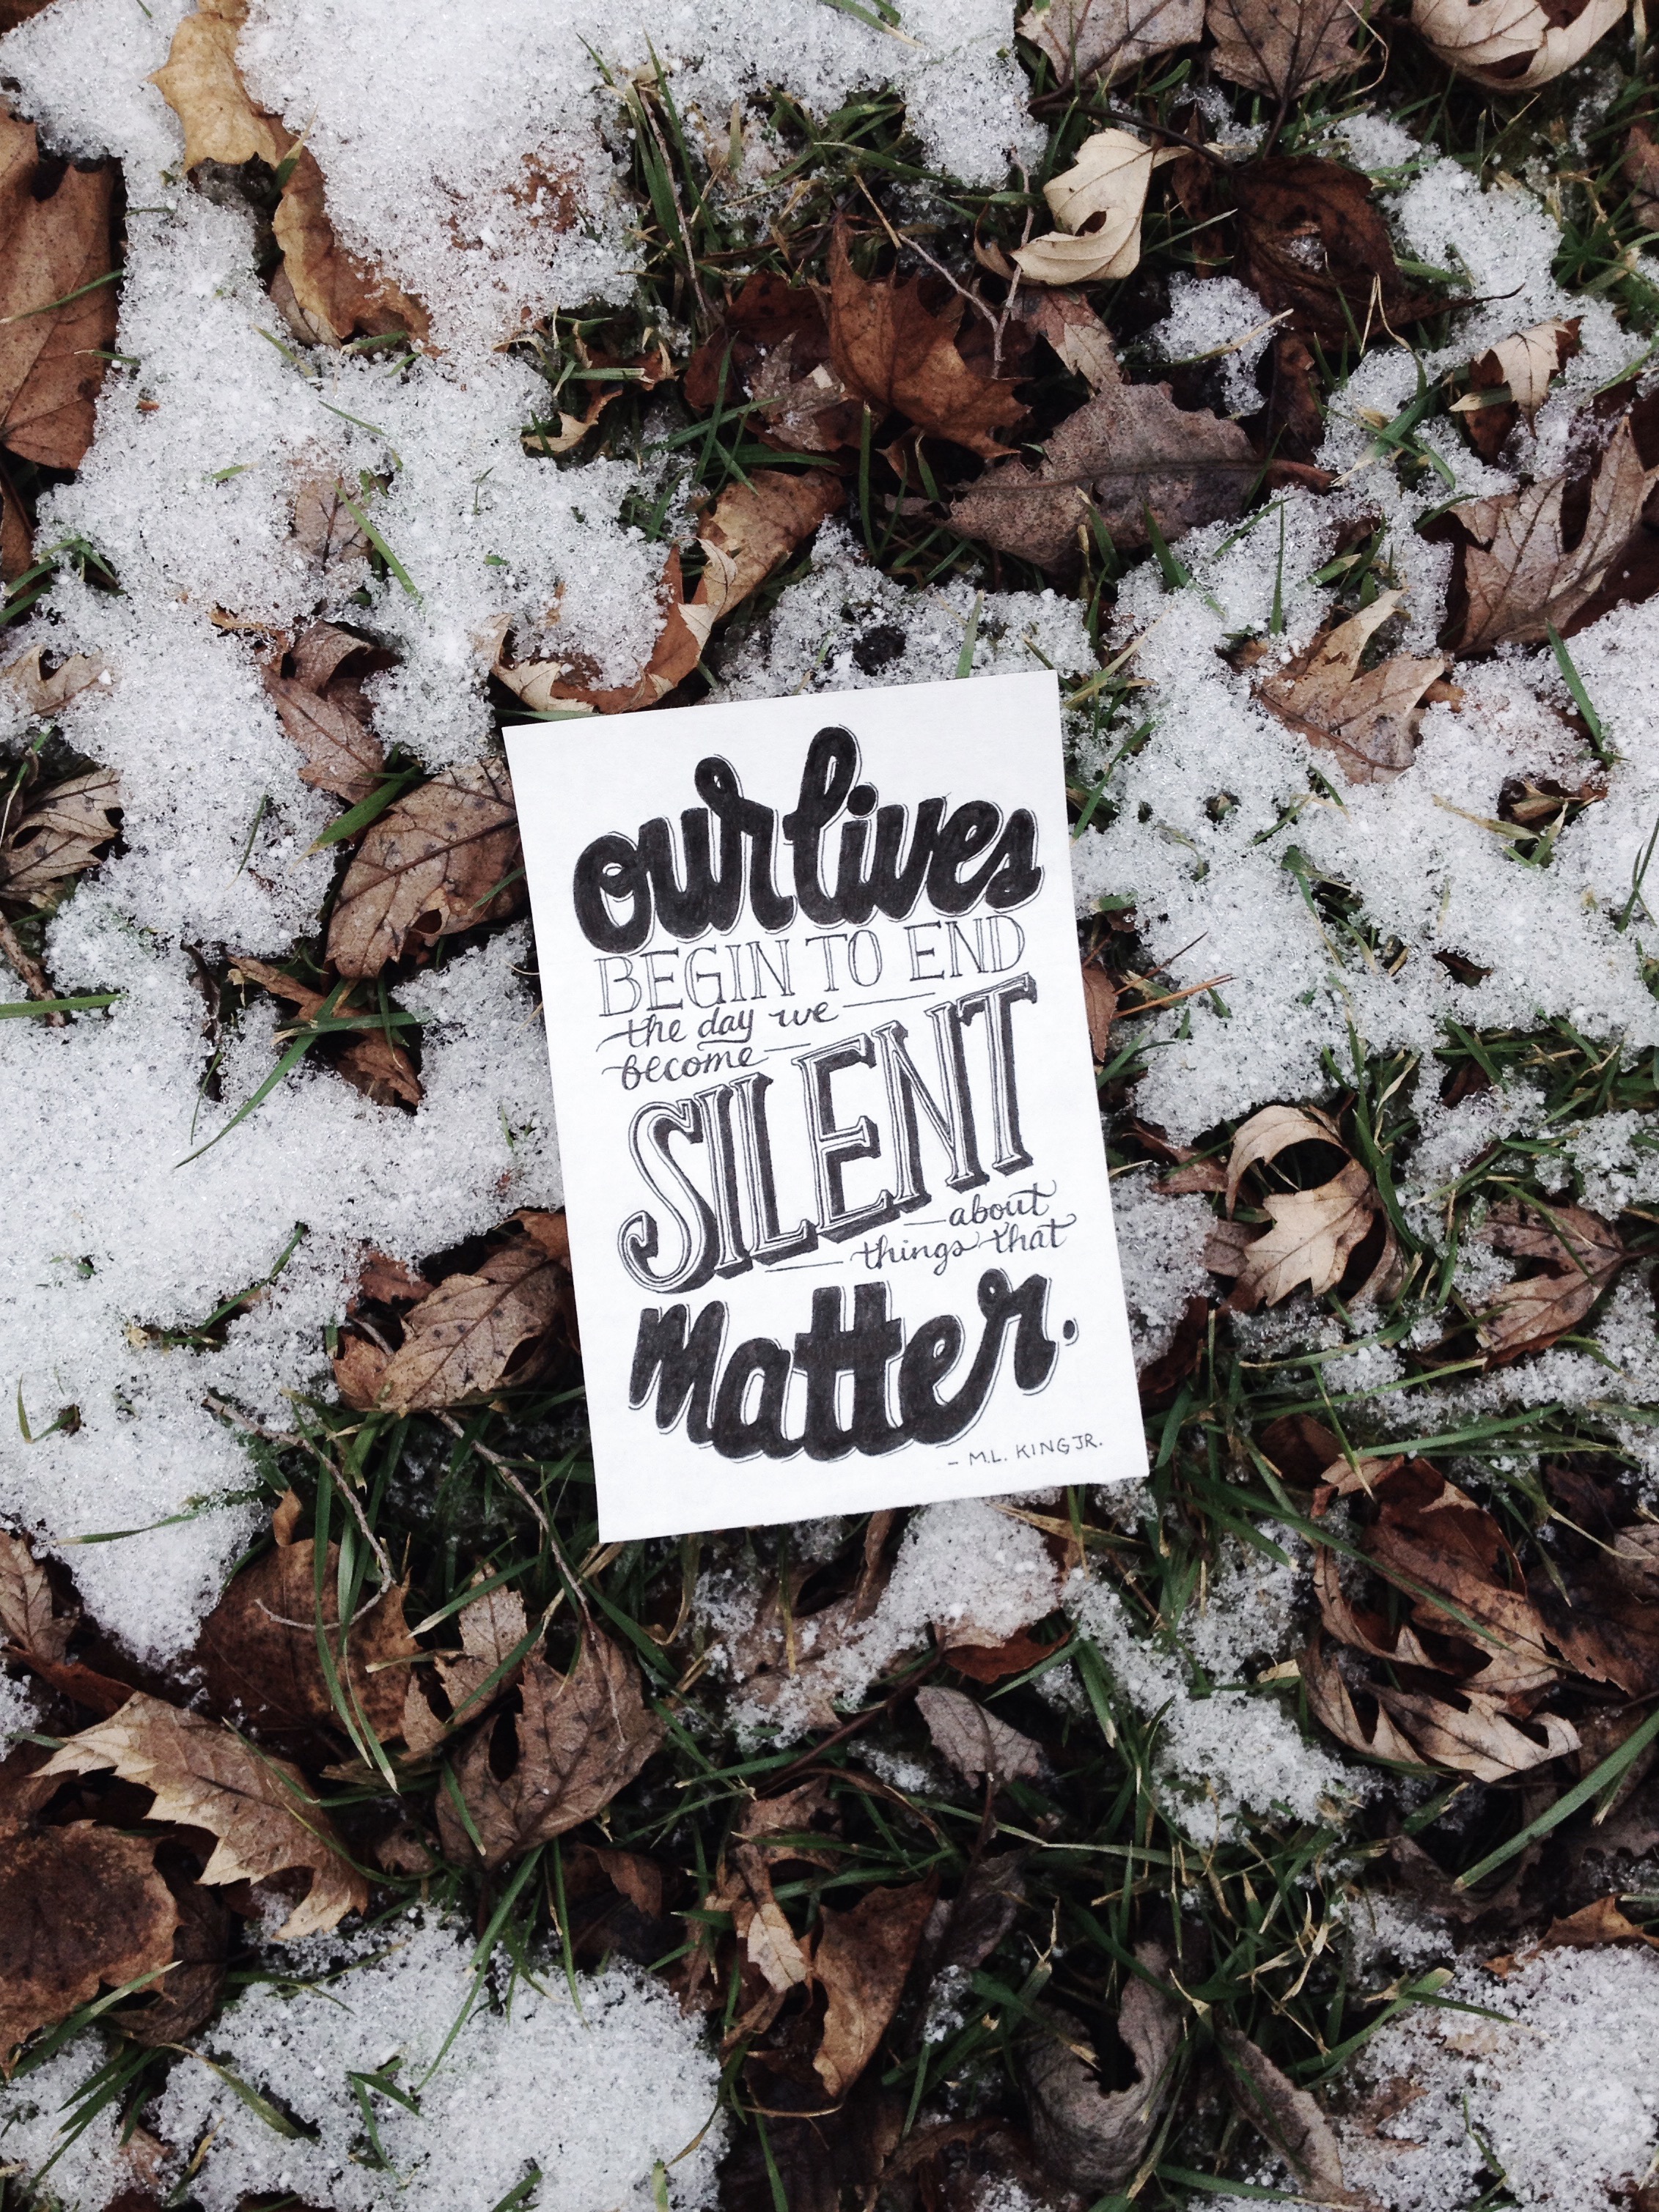 our lives
BEGIN TO END
the day we
become
SILENT
about
things that
matter.
- M.L. KING JR.